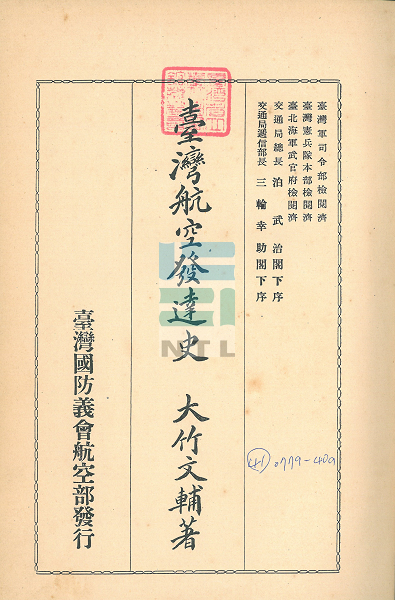 臺灣軍司令部檢閱濟
臺灣憲兵隊本部檢閱濟
臺北海軍武官府檢閱濟
交通局總長 泊武治閣下序
交通局遞信部長 三輪幸助閣下序
臺灣航空發達史 大竹文輔著
臺灣國防義會航空部發行
(41) 0779-409
NTL